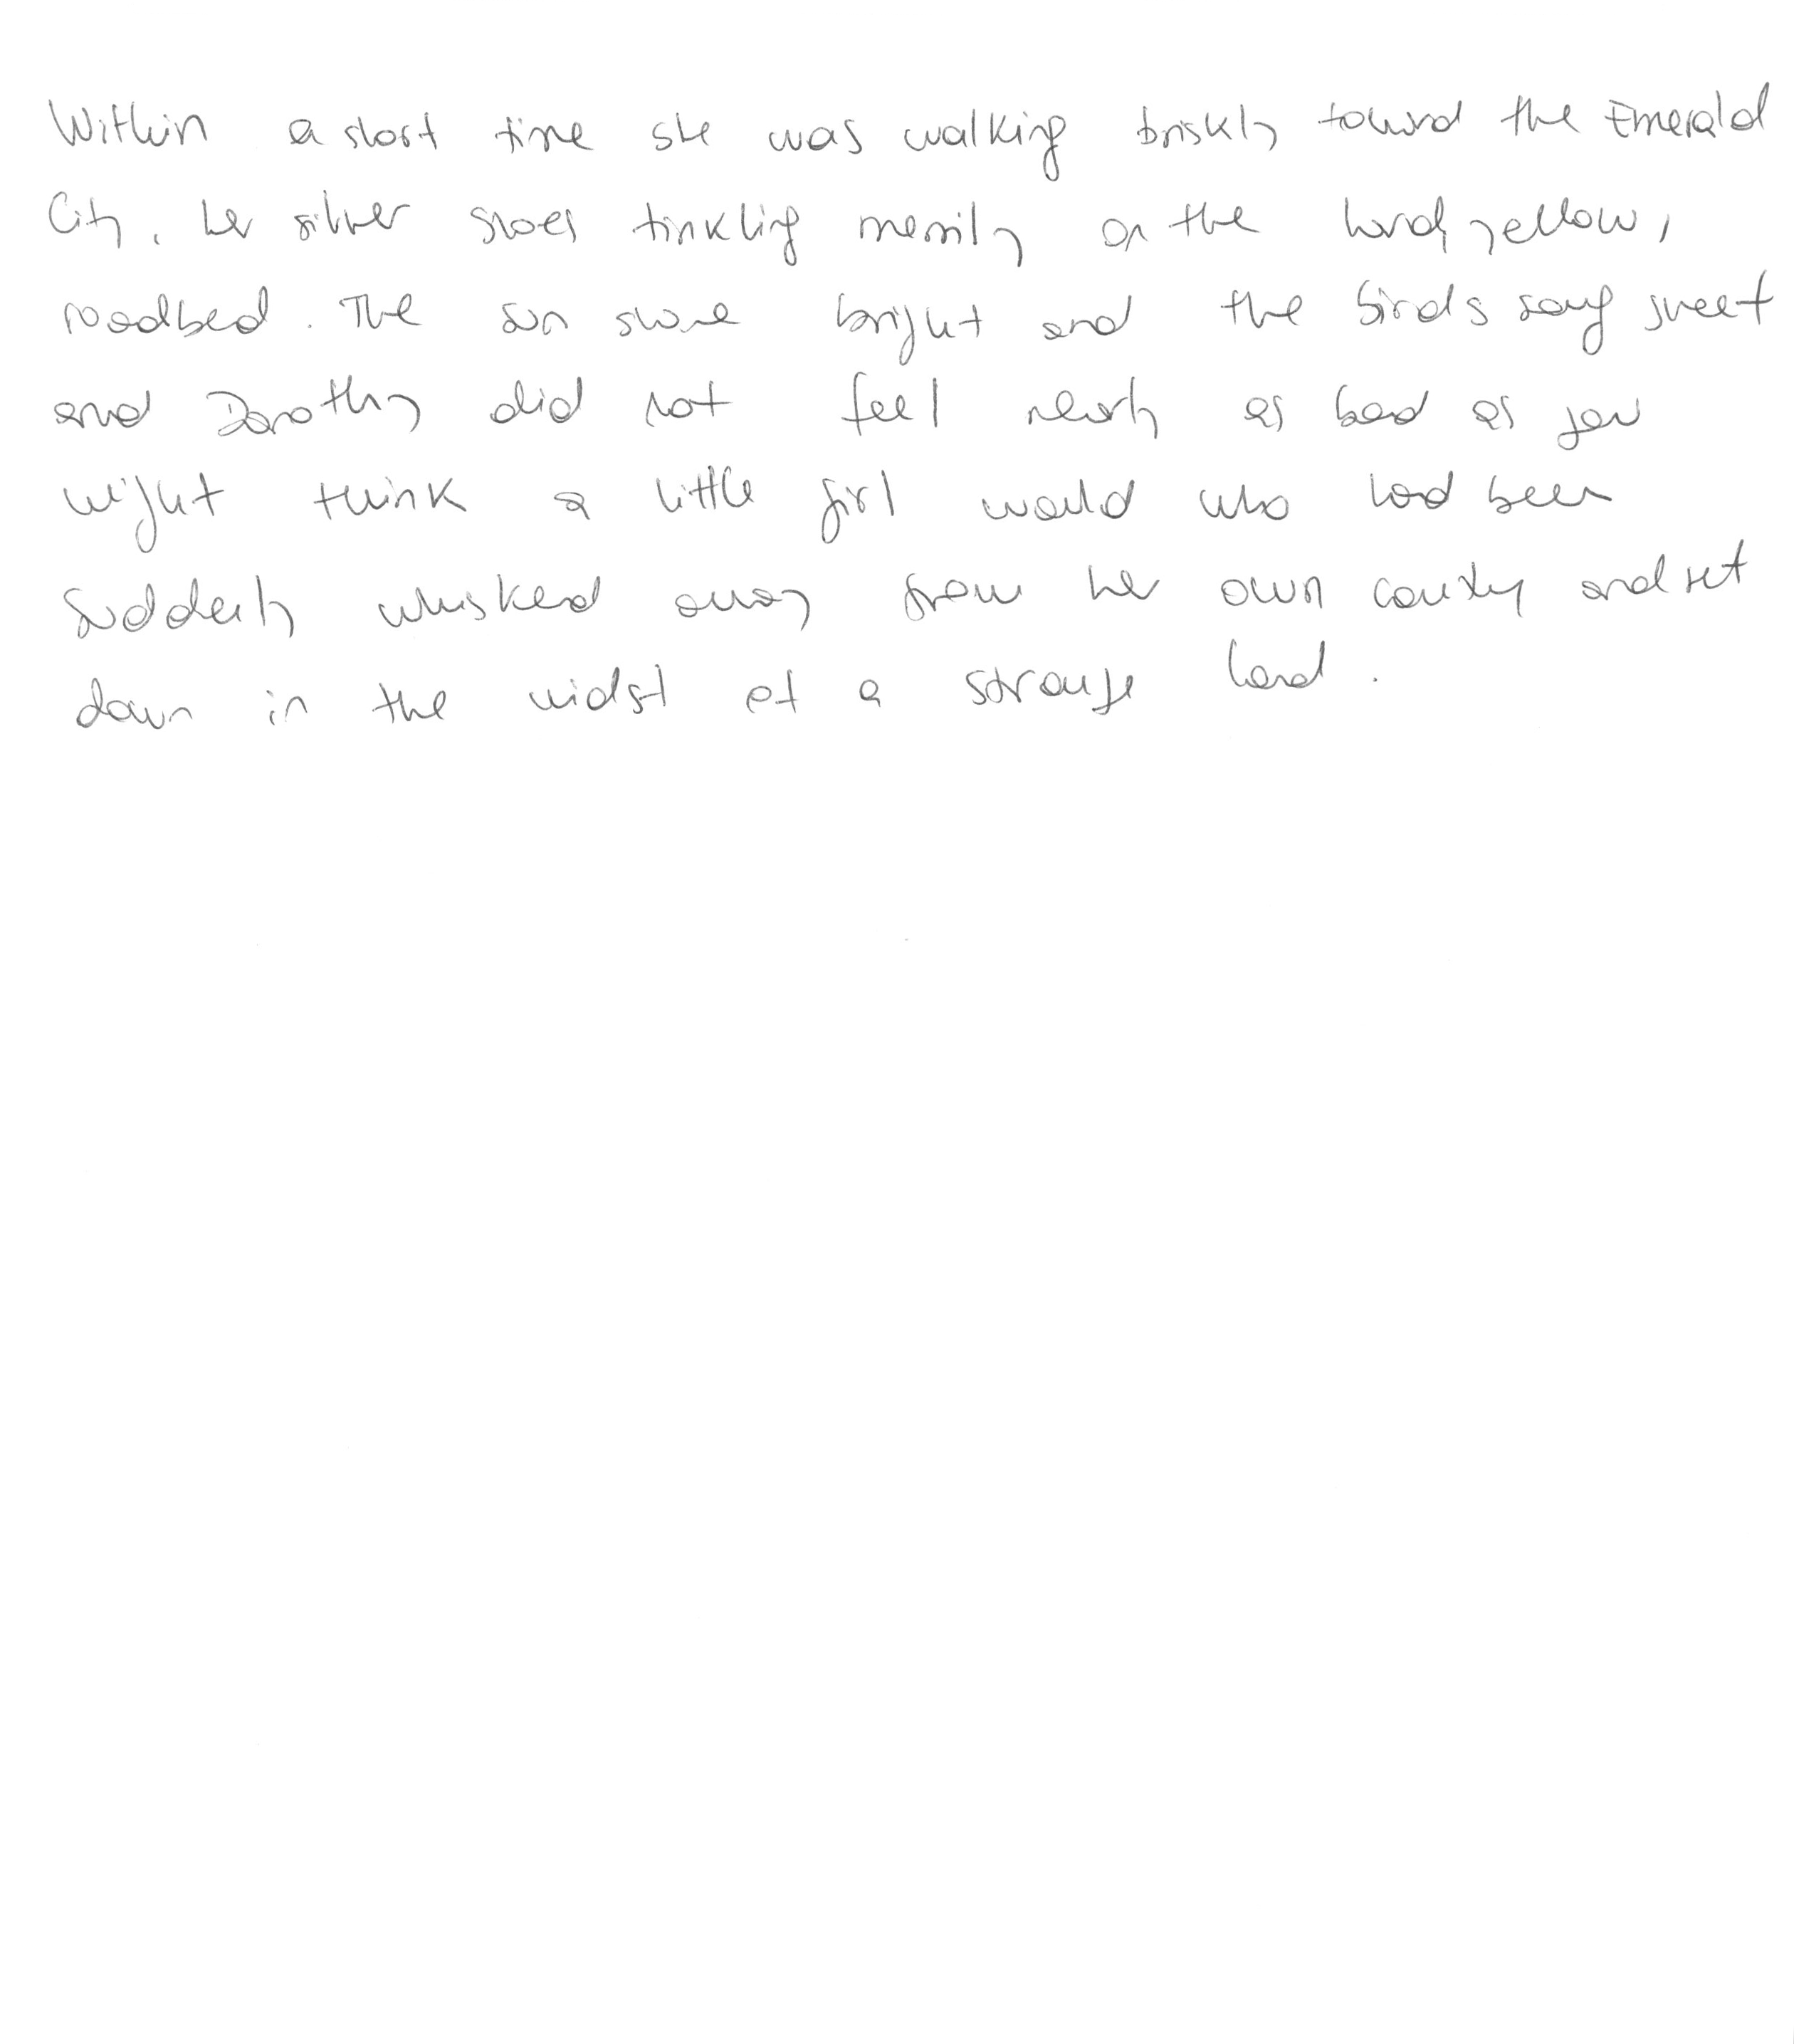 Within a short time she was walking briskly toward the Emerald
City, her silver shoes tinkling merrily on the hard, yellow,
roadbed. The sun shone bright and the birds sang sweet
and Dorothy did not feel nearly as bad as you
might think a little girl would who had been
suddenly whisked away from her own country and set
down in the midst of a strange land.